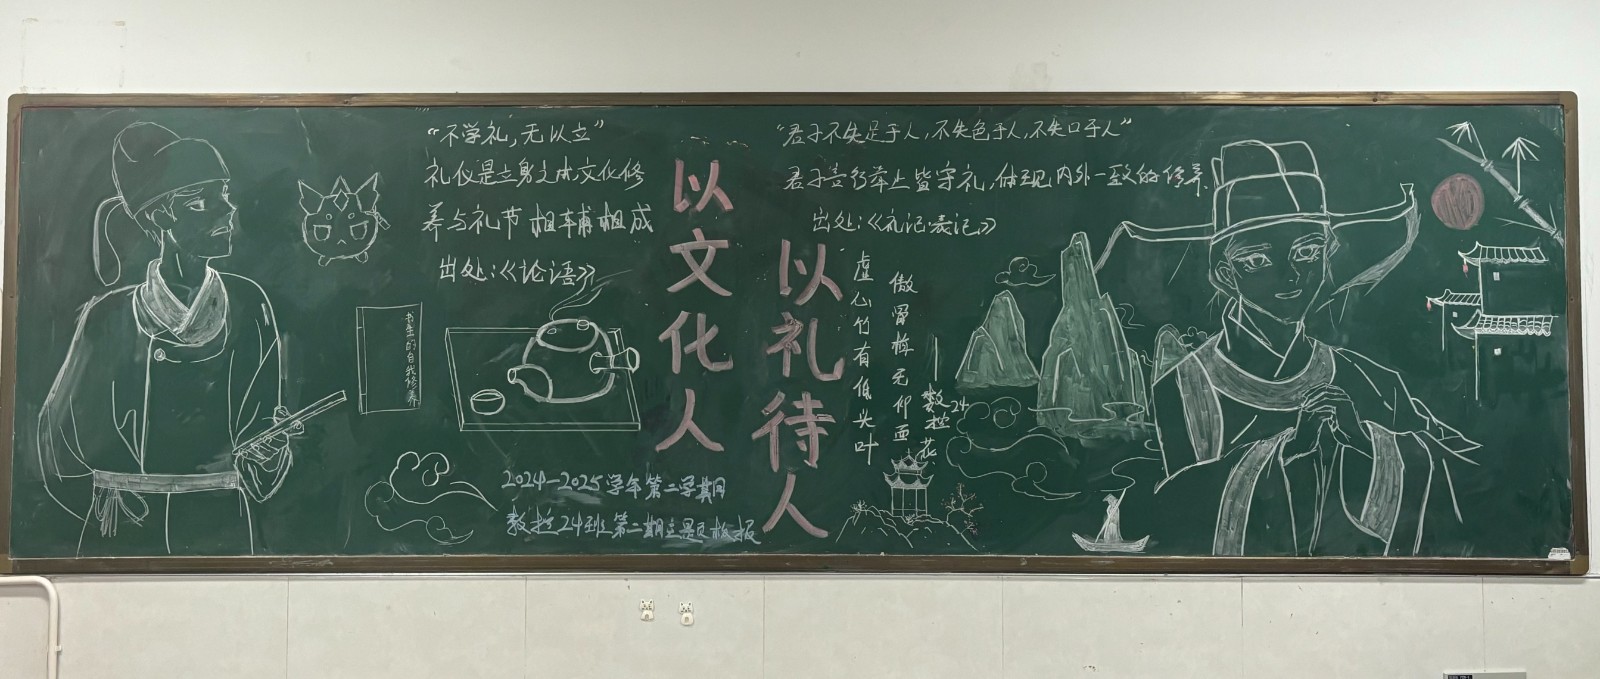 “不学礼，无以立”
礼仪是立身之本，文化修
养与礼节相辅相成
出处：《论语》
书生的自我修养
以文化人
以礼待人
“君子不失足于人，不失色于人，不失口于人”
君子言行举止皆守礼，体现内外一致的修养。
出处：《礼记·表记》
虚心竹有低头叶
傲骨梅无仰面花
数控24
2024-2025学年第二学期
数控24班第二期主题板报